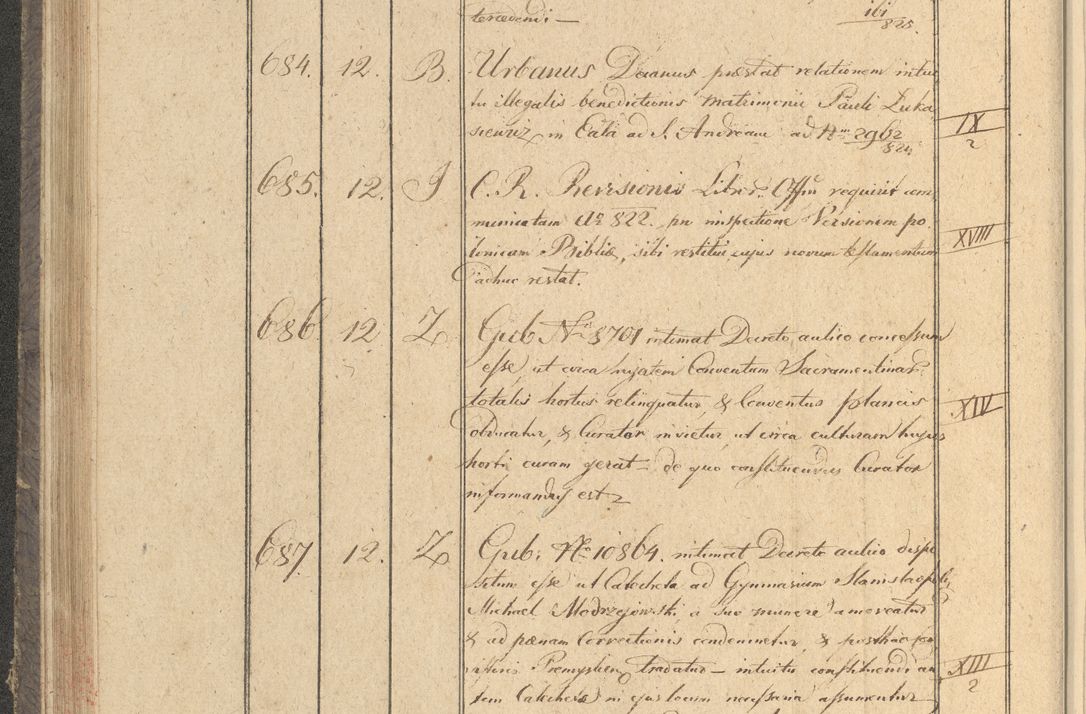 tercedendi — ibi
825.
684. 12. B. Urbanus Decanus præstat relationem intui
tu illegalis benedictionis matrimonii Pauli Luka
siewicz in Eccla ad S. Andream ad Nm 2962
824
IX
2
685. 12. I C. R. Revisionis Libror. Offm requirit com
municatam No 822. pro inspectione Versionem po
lonicam Bibliæ, sibi restitui cujus novum testamentum
adhuc restat.
XVIII
686. 12. Z Gub. No 8701 intimat Decreto aulico concessum
esse, ut circa hujatem Conventum Sacramentinar.
totalis hortus relinquatur, & Conventus plancis
obducatur, & Curator invietur, ut circa culturam hujus
horti curam gerat — de quo constituendus Curator
informandus est
XIV
687. 12. Z Gub. No 10864. intimat Decreto aulico dispo
situm esse ut Catecheta ad Gymnasium Stanislaopoli
Michael Modrzejowski, a suo munere amoveatur
& ad pœnam Correctionis condemnetur, &
Premyslien tradatur — intuitu constituendi au
tem Catechetæ in ejus locum necessaria assumentur —
XIII
2